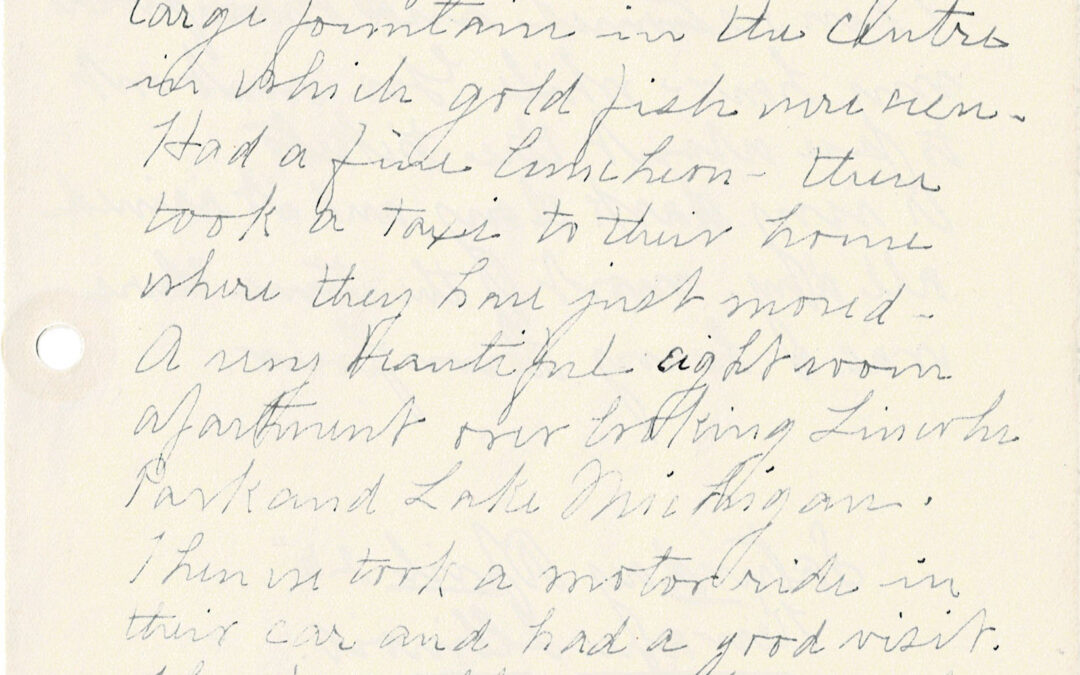 large fountain in the centre
in which gold fish were seen -
Had a fine luncheon - then
took a taxi to their home
where they have just moved -
A very beautiful eight room
apartment over looking Lincoln
Park and Lake Michigan.
Then we took a motor ride in
their car and had a good visit.